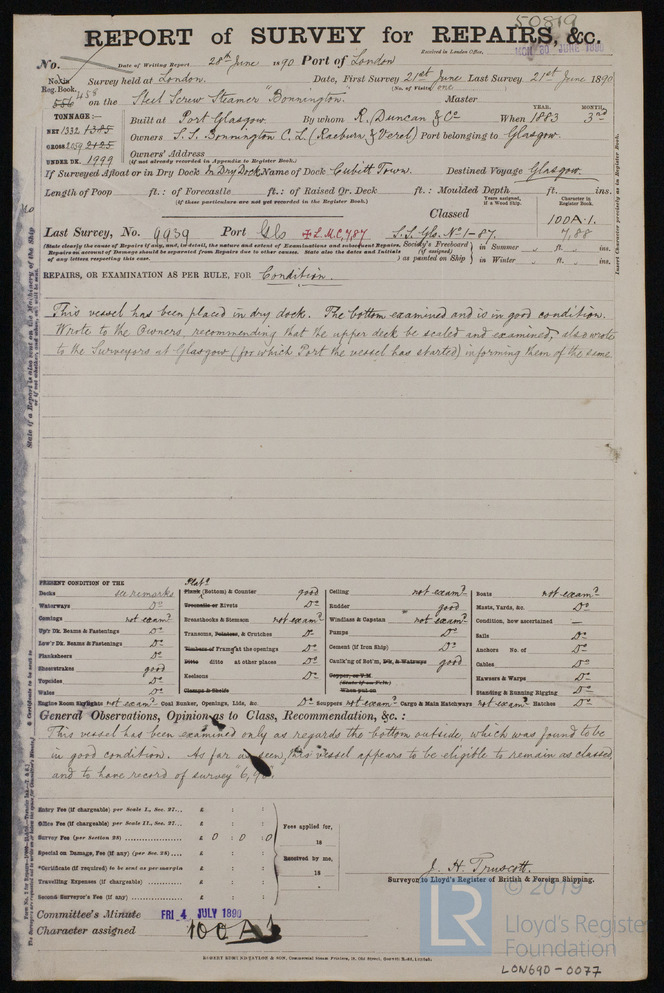 50819
REPORT of SURVEY for REPAIRS, &c.
Received in London Office, MON. 30 JUNE 1890
No. Date of Writing Report 28th June 1890 Port of London
No. in Reg. Book. Survey held at London. Date, First Survey 21st June Last Survey 21st June 1890
(No. of Visits) one
458 556 on the Steel Screw Steamer "Bonnington." Master
TONNAGE:— YEAR. MONTH.
NET 1332 1385 Built at Port Glasgow By whom R. Duncan & Co When 1883 3rd
GROSS 2059 2125 Owners S.S. Bonnington C. L. (Raeburn & Verel) Port belonging to Glasgow.
UNDER DK. 1999 Owners' Address
(if not already recorded in Appendix to Register Book.)
If Surveyed Afloat or in Dry Dock In Dry Dock Name of Dock Cubitt Town. Destined Voyage Glasgow.
Length of Poop ft.: of Forecastle ft.: of Raised Qr. Deck ft.: Moulded Depth ft. ins.
(if these particulars are not yet recorded in the Register Book.) Years assigned, if a Wood Ship. Character in Register Book.
Classed 100A.1.
Last Survey, No. 4939 Port Gls ✠L.M.C. 7,87 S.S. Gls. No. 1-87. 7,88
(State clearly the cause of Repairs if any, and, in detail, the nature and extent of Examinations and subsequent Repairs. Society's Freeboard (if assigned) in Summer ft. ins.
Repairs on account of Damage should be separated from Repairs due to other causes. State also the dates and Initials of any letters respecting this case. as painted on Ship in Winter ft. ins.
REPAIRS, OR EXAMINATION AS PER RULE, FOR Condition.
This vessel has been placed in dry dock. The bottom examined and is in good condition.
Wrote to the Owners, recommending that the upper deck be scaled and examined, also wrote
to the Surveyors at Glasgow (for which Port the vessel has started) informing them of the same
PRESENT CONDITION OF THE
Decks see remarks
Waterways Do
Comings not examd
Upr Dk. Beams & Fastenings Do
Lowr Dk. Beams & Fastenings Do
Planksheers Do
Sheerstrakes good
Topsides Do
Wales Do
Engine Room Skylights not examd
Platg
Plank (Bottom) & Counter good
Treenails or Rivets Do
Breasthooks & Stemson not examd
Transoms, Pointers, & Crutches Do
Timbers of Frame at the openings Do
Ditto ditto at other places Do
Keelsons Do
Clamps & Shelfs
Coal Bunker, Openings, Lids, &c. Do
Ceiling not examd
Rudder good
Windlass & Capstan not examd
Pumps Do
Cement (if Iron Ship) Do
Caulk'ng of Bot'm, D'k, & Waterways good
Copper, or Y.M.
(State if on Felt.)
When put on
Scuppers not examd Cargo & Main Hatchways not examd Hatches Do
Boats not examd
Masts, Yards, &c. Do
Condition, how ascertained —
Sails Do
Anchors No. of Do
Cables Do
Hawsers & Warps Do
Standing & Running Rigging Do
General Observations, Opinion as to Class, Recommendation, &c. :
This vessel has been examined only as regards the bottom outside, which was found to be
in good condition. As far as seen, this vessel appears to be eligible to remain as classed,
and to have record of survey 6,90.
Entry Fee (if chargeable) per Scale I., Sec. 27... £ : :
Office Fee (if chargeable) per Scale II., Sec. 27... £ : :
Survey Fee (per Section 28) £ 0 : 0 : 0
Special on Damage, Fee (if any) (per Sec. 28)... £ : :
*Certificate (if required) to be sent as per margin £ : :
Travelling Expenses (if chargeable) £ : :
Second Surveyor's Fee (if any) £ : :
Fees applied for,
18
Received by me,
18
J. H. Truscott.
Surveyor to Lloyd's Register of British & Foreign Shipping.
Committee's Minute FRI. 4 JULY 1890
Character assigned 100 A 1
ROBERT EDMUND TAYLOR & SON, Commercial Steam Printers, 19, Old Street, Goswell Road, London.
© 2019
LR
Lloyd's Register
Foundation
LON690-0077